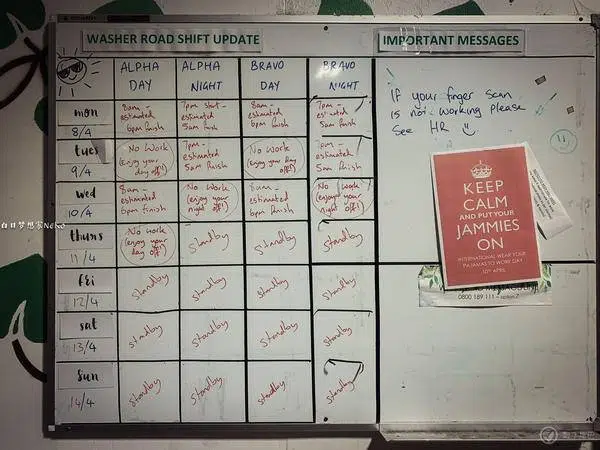 WASHER ROAD SHIFT UPDATE
IMPORTANT MESSAGES
ALPHA DAY
ALPHA NIGHT
BRAVO DAY
BRAVO NIGHT
mon
8/4
8am - estimated 6pm finish
7pm start - estimated 5am finish
8am - estimated 6pm finish
7pm - estimated 5am finish
tues
9/4
No Work (enjoy your day off!)
7pm - estimated 5am finish
No Work (enjoy your day off!)
7pm - estimated 5am finish
wed
10/4
8am - estimated 6pm finish
No Work (enjoy your night off!)
8am - estimated 6pm finish
No Work (enjoy your night off!)
thurs
11/4
No Work (enjoy your day off!)
standby
standby
standby
fri
12/4
standby
standby
standby
standby
sat
13/4
standby
standby
standby
standby
sun
14/4
standby
standby
standby
standby
If your finger scan
is not working please
see HR
KEEP
CALM
AND PUT YOUR
JAMMIES
ON
INTERNATIONAL WEAR YOUR
PAJAMAS TO WORK DAY
10TH APRIL
0800 189 111 - option 7
白日梦想家NeKo